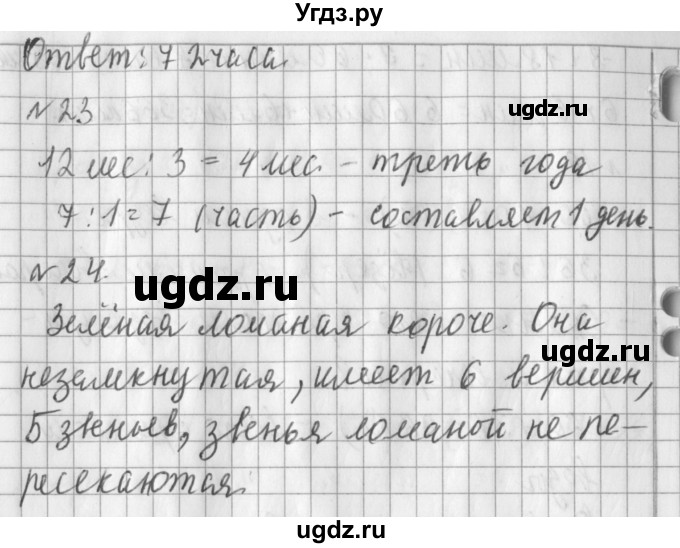 Угдз.ру
Ответ: 72 часа.
ugdz.ru
№23
12 мес : 3 = 4 мес. - треть года
7 : 1 = 7 (часть) - составляет 1 день.
№24.
ugdz.ru
Зелёная ломаная короче. Она
ugdz.ru
незамкнутая, имеет 6 вершин,
ugdz.ru
5 звеньев, звенья ломаной не пе-
ресекаются.
ugdz.ru